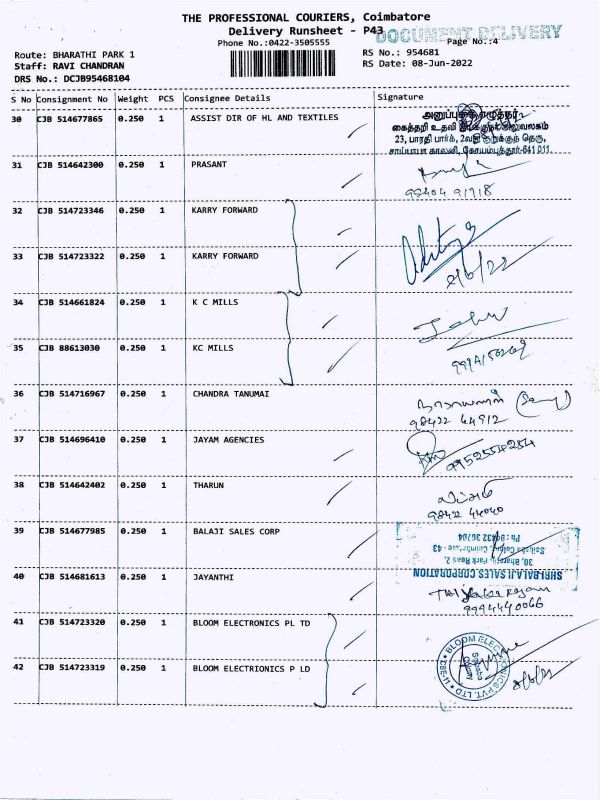 THE PROFESSIONAL COURIERS, Coimbatore
Delivery Runsheet - P43
DOCUMENT DELIVERY
Phone No.:0422-3505555
Page No.:4
Route: BHARATHI PARK 1
RS No.: 954681
Staff: RAVI CHANDRAN
RS Date: 08-Jun-2022
DRS No.: DCJB95468104
S No Consignment No Weight PCS Consignee Details Signature
30 CJB 514677865 0.250 1 ASSIST DIR OF HL AND TEXTILES
கைத்தறி உதவி இயக்குநர் அலுவலகம்
23, பாரதி பார்க், 2வது குறுக்குத் தெரு,
சாய்பாபா காலனி, கோயம்புத்தூர்-641 011
31 CJB 514642300 0.250 1 PRASANT
98404 91718
32 CJB 514723346 0.250 1 KARRY FORWARD
33 CJB 514723322 0.250 1 KARRY FORWARD
8/6/22
34 CJB 514661824 0.250 1 K C MILLS
35 CJB 88613030 0.250 1 KC MILLS
36 CJB 514716967 0.250 1 CHANDRA TANUMAI
98422 44912
37 CJB 514696410 0.250 1 JAYAM AGENCIES
9952554284
38 CJB 514642402 0.250 1 THARUN
98422 44040
39 CJB 514677985 0.250 1 BALAJI SALES CORP
SHRI BALAJI SALES CORPORATION
30, Bharathi Park Road 2,
Saibaba Colony, Coimbatore - 43
40 CJB 514681613 0.250 1 JAYANTHI
9994440066
41 CJB 514723320 0.250 1 BLOOM ELECTRONICS PL TD
42 CJB 514723319 0.250 1 BLOOM ELECTRIONICS P LD
BLOOM ELECTRONICS PVT. LTD
8/6/22